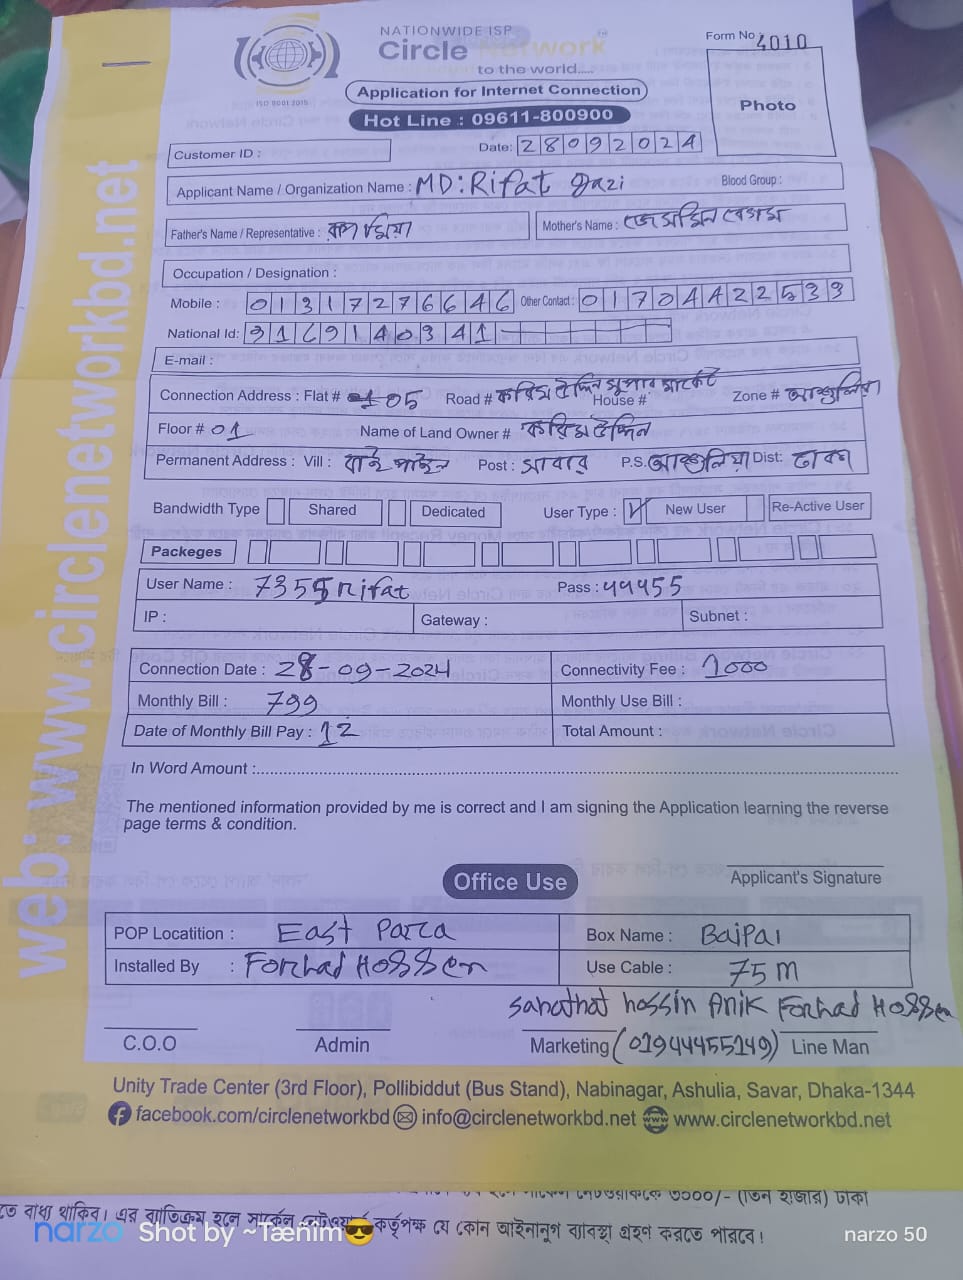 NATIONWIDE ISP
Circle Network
to the world.....
ISO 9001:2015
Form No 4010
Application for Internet Connection
Hot Line : 09611-800900
Photo
Customer ID :
Date: 28092024
Applicant Name / Organization Name : MD:Rifat Gazi Blood Group :
Father's Name / Representative : মিয়া Mother's Name : জেসমিন বেগম
Occupation / Designation :
Mobile : 01317276646 Other Contact : 01704422539
National Id: 3169140341
E-mail :
Connection Address : Flat # 05 Road # করিম উদ্দিন সুপার মার্কেট House # Zone # আশুলিয়া
Floor # 01 Name of Land Owner # করিম উদ্দিন
Permanent Address : Vill : বাই পাইল Post : সাবার P.S. আশুলিয়া Dist: ঢাকা
Bandwidth Type Shared Dedicated User Type : New User Re-Active User
Packeges
User Name : 7355Rifat Pass : 44455
IP : Gateway : Subnet :
Connection Date : 28-09-2024 Connectivity Fee : 1000
Monthly Bill : 799 Monthly Use Bill :
Date of Monthly Bill Pay : 12 Total Amount :
In Word Amount :
The mentioned information provided by me is correct and I am signing the Application learning the reverse
page terms & condition.
Office Use
Applicant's Signature
POP Locatition : East Parca Box Name : BaiPal
Installed By : Forhad Hossen Use Cable : 75 M
hossin Anik Forhad Hossen
C.O.O Admin Marketing (01944455149) Line Man
Unity Trade Center (3rd Floor), Pollibiddut (Bus Stand), Nabinagar, Ashulia, Savar, Dhaka-1344
facebook.com/circlenetworkbd info@circlenetworkbd.net www.circlenetworkbd.net
web: www.circlenetworkbd.net
৩০০০/- (তিন হাজার) টাকা
তে বাধ্য থাকিব। এর ব্যতিক্রম হলে সার্কেল নেটওয়ার্ক কর্তৃপক্ষ যে কোন আইনানুগ ব্যাবস্থা গ্রহণ করতে পারবে।
narzo Shot by ~Tæñîm😎 narzo 50